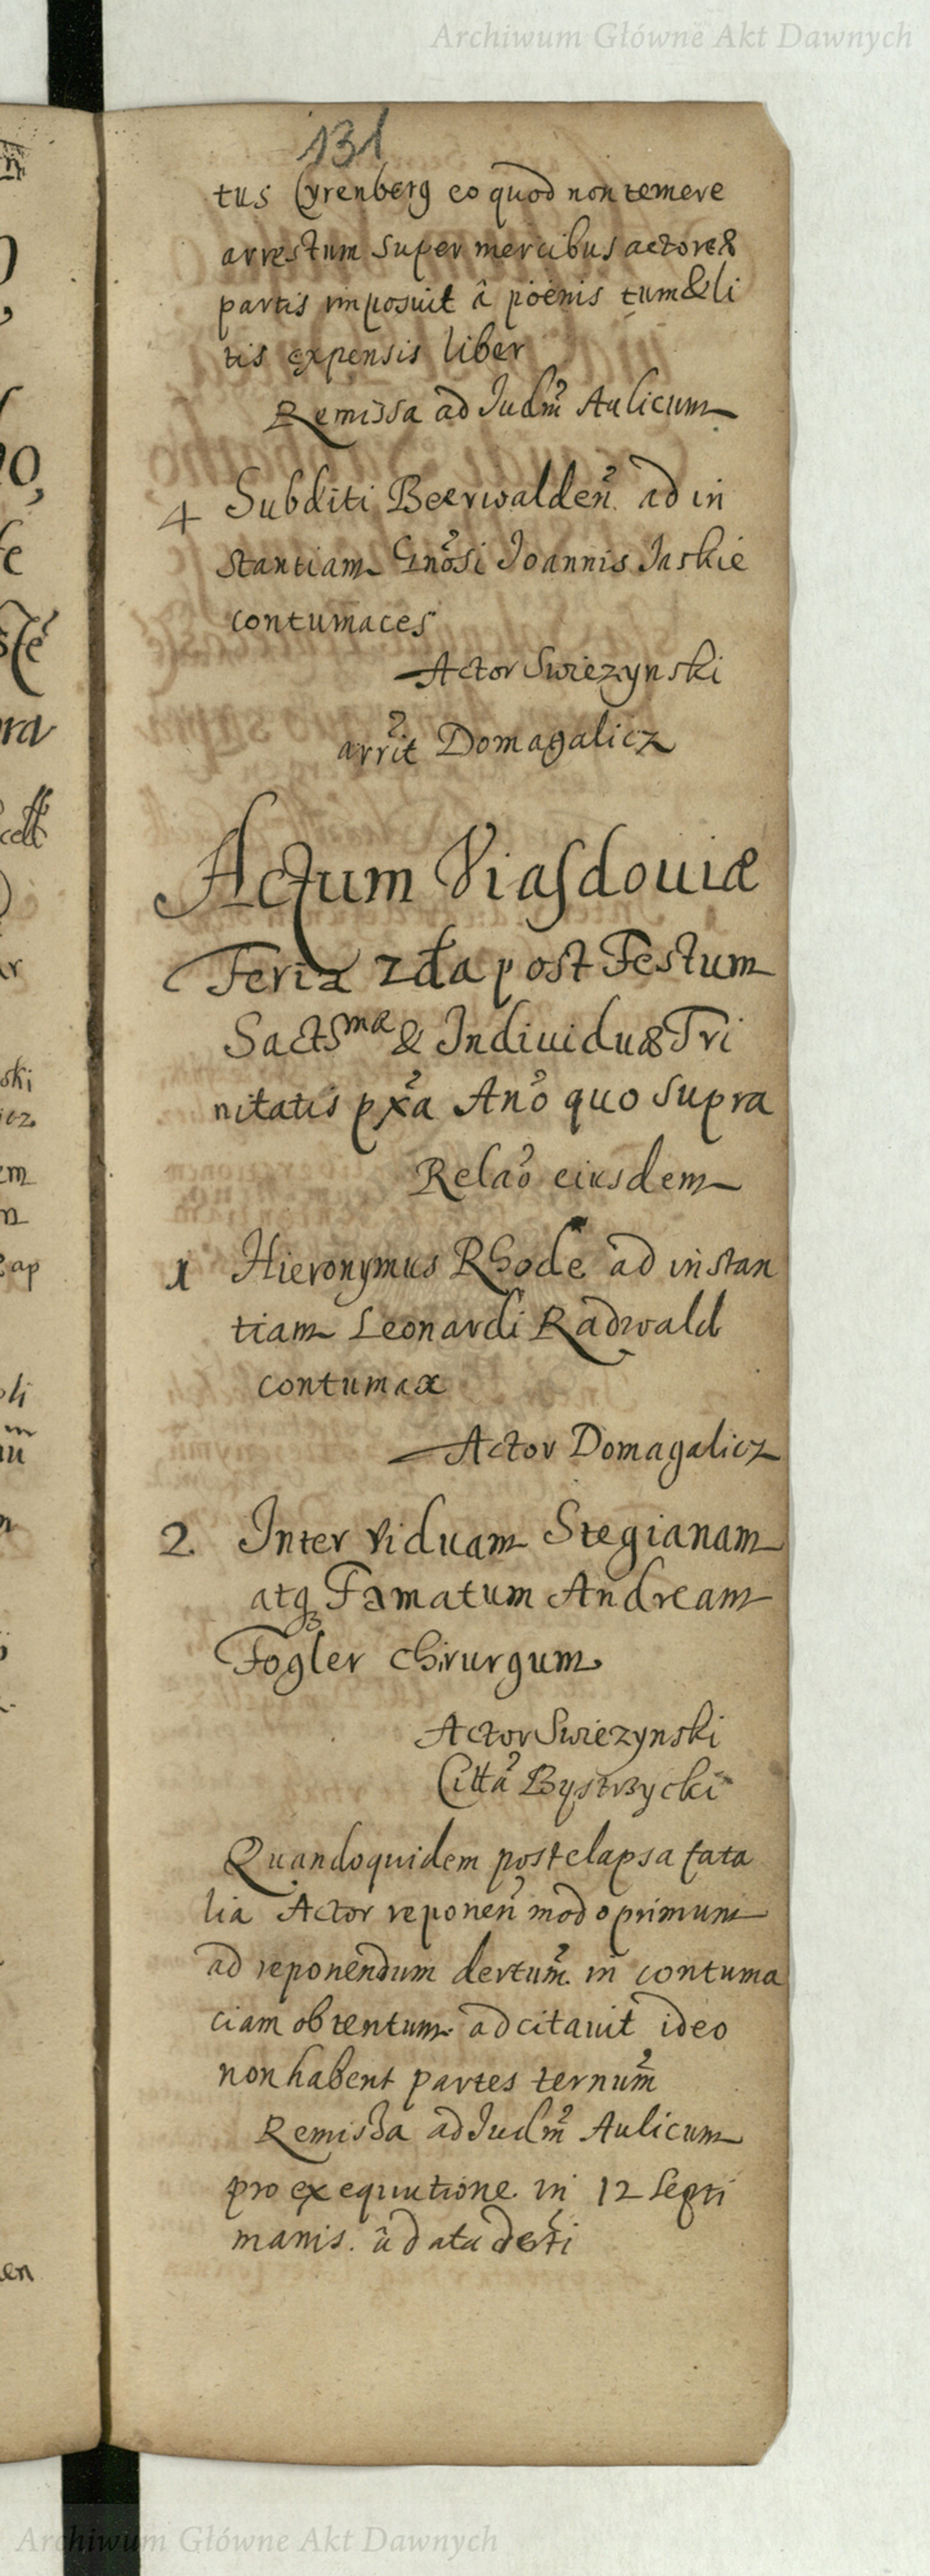 Archiwum Główne Akt Dawnych
131
tus Cyrenberg eo quod non temere
arrestum super mercibus actoreæ
partis imposuit â poenis tum & li
tis expensis liber
Remissa ad Judm̃ Aulicum
4 Subditi Beerwalden̉ ad in
stantiam Gnõsi Joannis Jaskie
contumaces
Actor Swiezynski
arrit Domagalicz
Actum Viasdouiæ
Feria 2da post Festum
Sactsmæ & Indiuiduæ Tri
nitatis pxa Ano quo supra
Relao eiusdem
1 Hieronymus Rhode ad instan
tiam Leonardi Radwald
contumax
Actor Domagalicz
2. Inter Viduam Stegianam
atq3 Famatum Andream
Fogler Chirurgum
Actor Swiezynski
Citta Bystrzycki
Quandoquidem post elapsa fata
lia Actor reponen̉ modo primum
ad reponendum dertum̃ in contuma
ciam obtentum adcitauit ideo
non habent partes ternum̃
Remissa ad Judm̃ Aulicum
pro exequutione in 12 Septi
manis. â data derti
Archiwum Główne Akt Dawnych